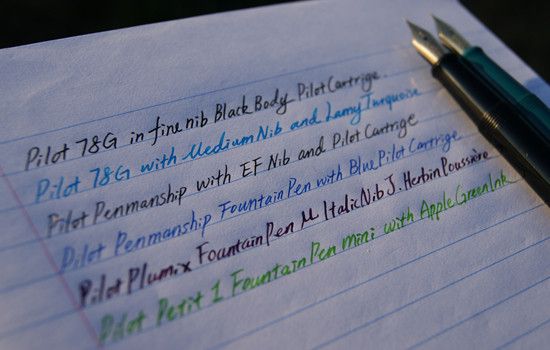 Pilot 78G in fine nib Black Body Pilot Cartrige
Pilot 78G with Medium Nib and Lamy Turquoise
Pilot Penmanship with EF Nib and Pilot Cartrige
Pilot Penmanship Fountain Pen with Blue Pilot Cartrige
Pilot Plumix Fountain Pen M Italic Nib J. Herbin Poussière
Pilot Petit 1 Fountain Pen mini with Apple Green Ink